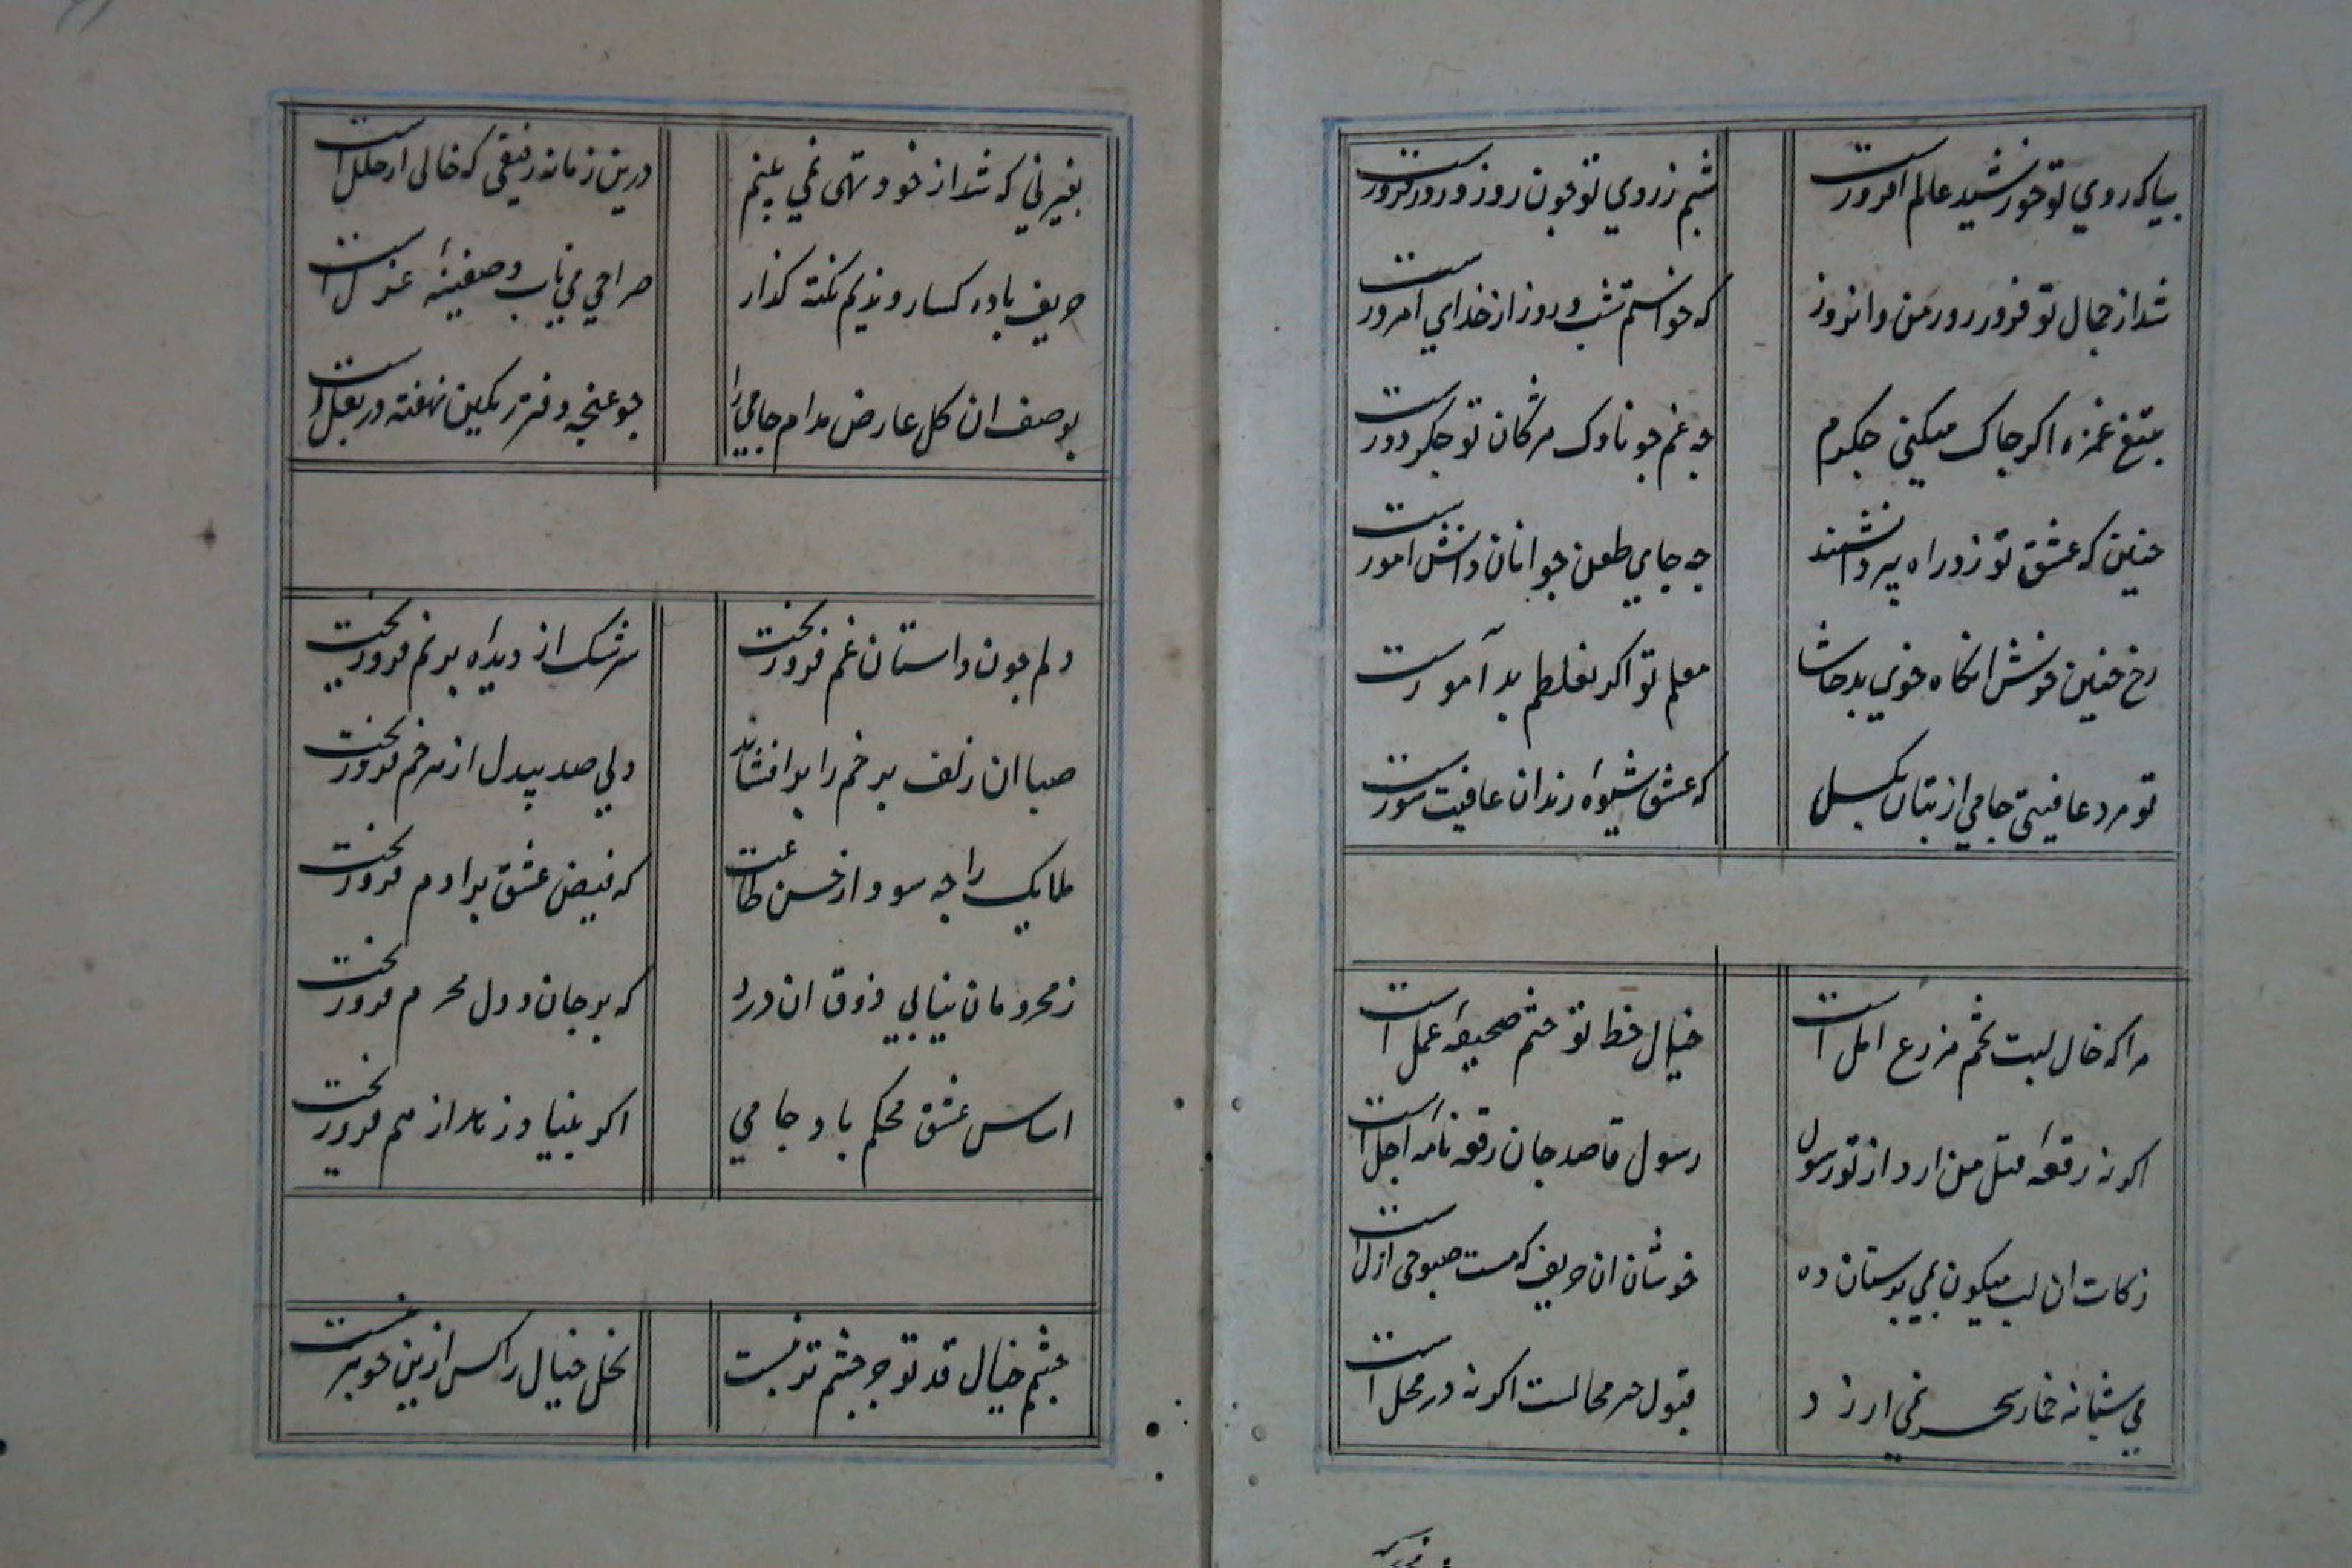 بیا که روي تو خورشید عالم افروزست شبم ز روي تو چون روز و روز فیروزست
شد از جمال تو فیروز روز من و امروز که خواستم شب و روز از خداي امروزست
بتیغ غمزه اکر چاک میکنی جکرم چه غم چو ناوک مژکان تو جکر دوزست
چنین که عشق تو زد راه پیر دانشمند چه جاي طعن جوانان دانش اموزست
رخ چنین خوش انکاه خوي بد حاشا معلم تو اکر نغلطم بد آموزست
تو مرد عافیتی جامي از بتان بکسل که عشق شیوه رندان عافیت سوزست
مرا که خال لبت تخم مزرع امل است خیال خط تو ختم صحیفه عمل است
اکر نه رقعه قتل من ارد از تو رسول رسول قاصد جان رقعه نامه اجل است
زکات ان لب میکون بمي پرستان ده خوشان ان حریف که مست صبوحی ازل است
مي شبانه خمار سحر نمي ارزد قبول محالست اکر نه در محل است
بغیر نی که شد از خود تهی نمي بینم درین زمانه رفیقی که خالی از خلل است
حریف باده کسار و ندیم نکته کذار صراحي مي ناب و سفینهٔ غزل است
بوصف ان کل عارض مدام جامي را چو غنچه دفتر رنکین نهفته در بغل است
دلم چون داستان غم فرو ریخت سرشک از دیده پر نم فرو ریخت
صبا ان زلف پر خم را بر افشاند دلي صد بیدل از هر خم فرو ریخت
ملایک را چه سود از حسن طاعت که فیض عشق بر ادم فرو ریخت
ز محرومان نیابي ذوق ان درد که بر جان و دل محرم فرو ریخت
اساس عشق محکم باد جامي اکر بنیاد زهد از هم فرو ریخت
چشم خیال قد تو چشم تر نبست نخل خیال را کس ازین خوبتر نبست